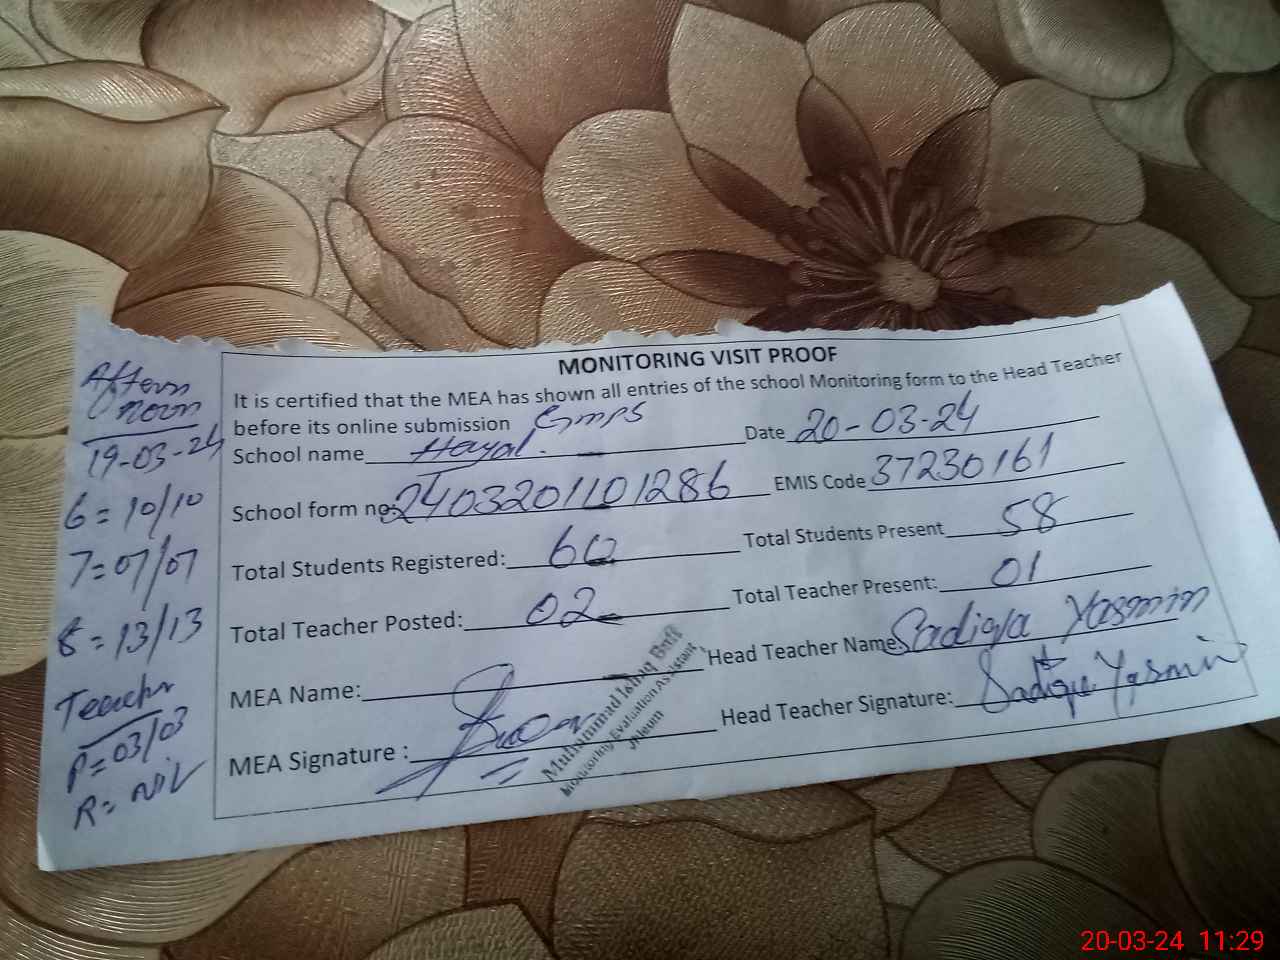 MONITORING VISIT PROOF
It is certified that the MEA has shown all entries of the school Monitoring form to the Head Teacher
before its online submission
School name GMPS Hayal. Date 20-03-24
School form no: 2403201101286 EMIS Code 37230161
Total Students Registered: 60 Total Students Present 58
Total Teacher Posted: 02 Total Teacher Present: 01
MEA Name: Head Teacher Name: Sadiqa Yasmin
MEA Signature : Head Teacher Signature: Sadiqa Yasmin
Muhammad Ishaq Butt
Monitoring Evaluation Assistant
Jhelum
After
noon
19-03-24
6 = 10/10
7 = 07/07
8 = 13/13
Teacher
P = 03/03
R = Nil
20-03-24 11:29